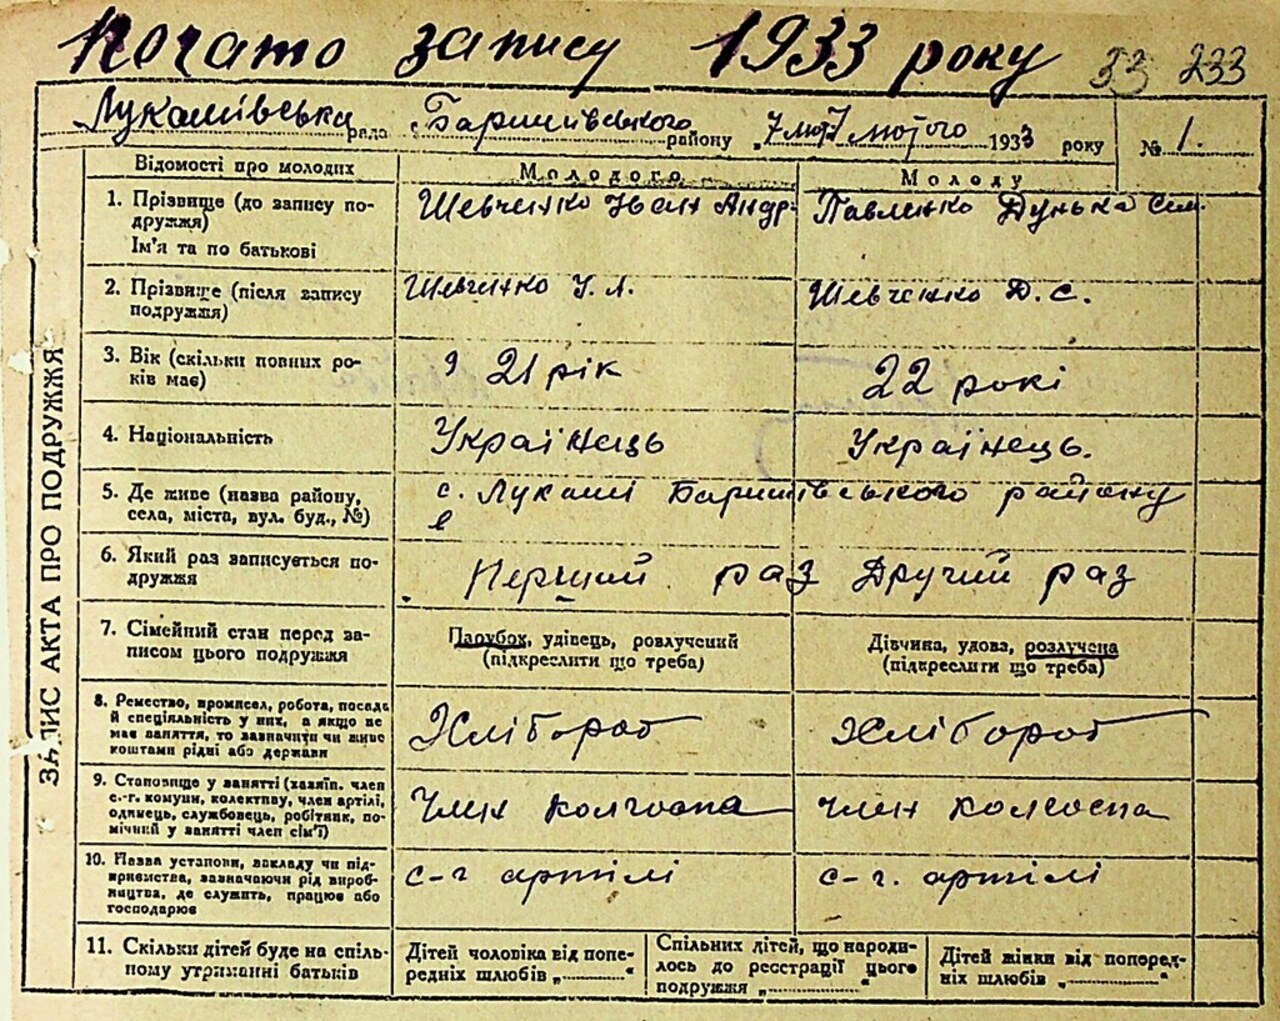 Почато запису 1933 року 33 233
Лукашівська рада Баришівського району „7 лют 7 лютого 1933 року № 1.
Відомості про молодих Молодого Молоду
1. Прізвище (до запису по-
дружжя)
Ім'я та по батькові
Шевченко Іван Андр. Павленко Дунька Сем.
2. Прізвище (після запису
подружжя)
Шевченко І. А. Шевченко Д. С.
3. Вік (скільки повних ро-
ків має)
21 рік 22 році
4. Національність Українець Українець.
5. Де живе (назва району,
села, міста, вул. буд., №)
с. Лукаші Баришівського району
6. Який раз записується по-
дружжя
Перший раз Другий раз
7. Сімейний стан перед за-
писом цього подружжя
Парубок, удівець, розлучений
(підкреслити що треба)
Дівчина, удова, розлучена
(підкреслити що треба)
8. Ремество, промисел, робота, посада
й спеціяльність у них, а якщо не
має заняття, то зазначити чи живе
коштами рідні або держави
Хлібороб Хлібороб
9. Становище у занятті (хазяїн, член
с.-г. комуни, колективу, член артілі,
одинець, службовець, робітник, по-
мічний у занятті член сім'ї)
член колгоспа член колгоспа
10. Назва установи, закладу чи під-
приємства, зазначаючи рід вироб-
ництва, де служить, працює або
господарює
с-г артілі с-г. артілі
11. Скільки дітей буде на спіль-
ному утриманні батьків
Дітей чоловіка від попе-
редніх шлюбів „ “
Спільних дітей, що народи-
лось до реєстрації цього
подружжя „ “
Дітей жінки від поперед-
ніх шлюбів „ “
ЗАПИС АКТА ПРО ПОДРУЖЖЯ